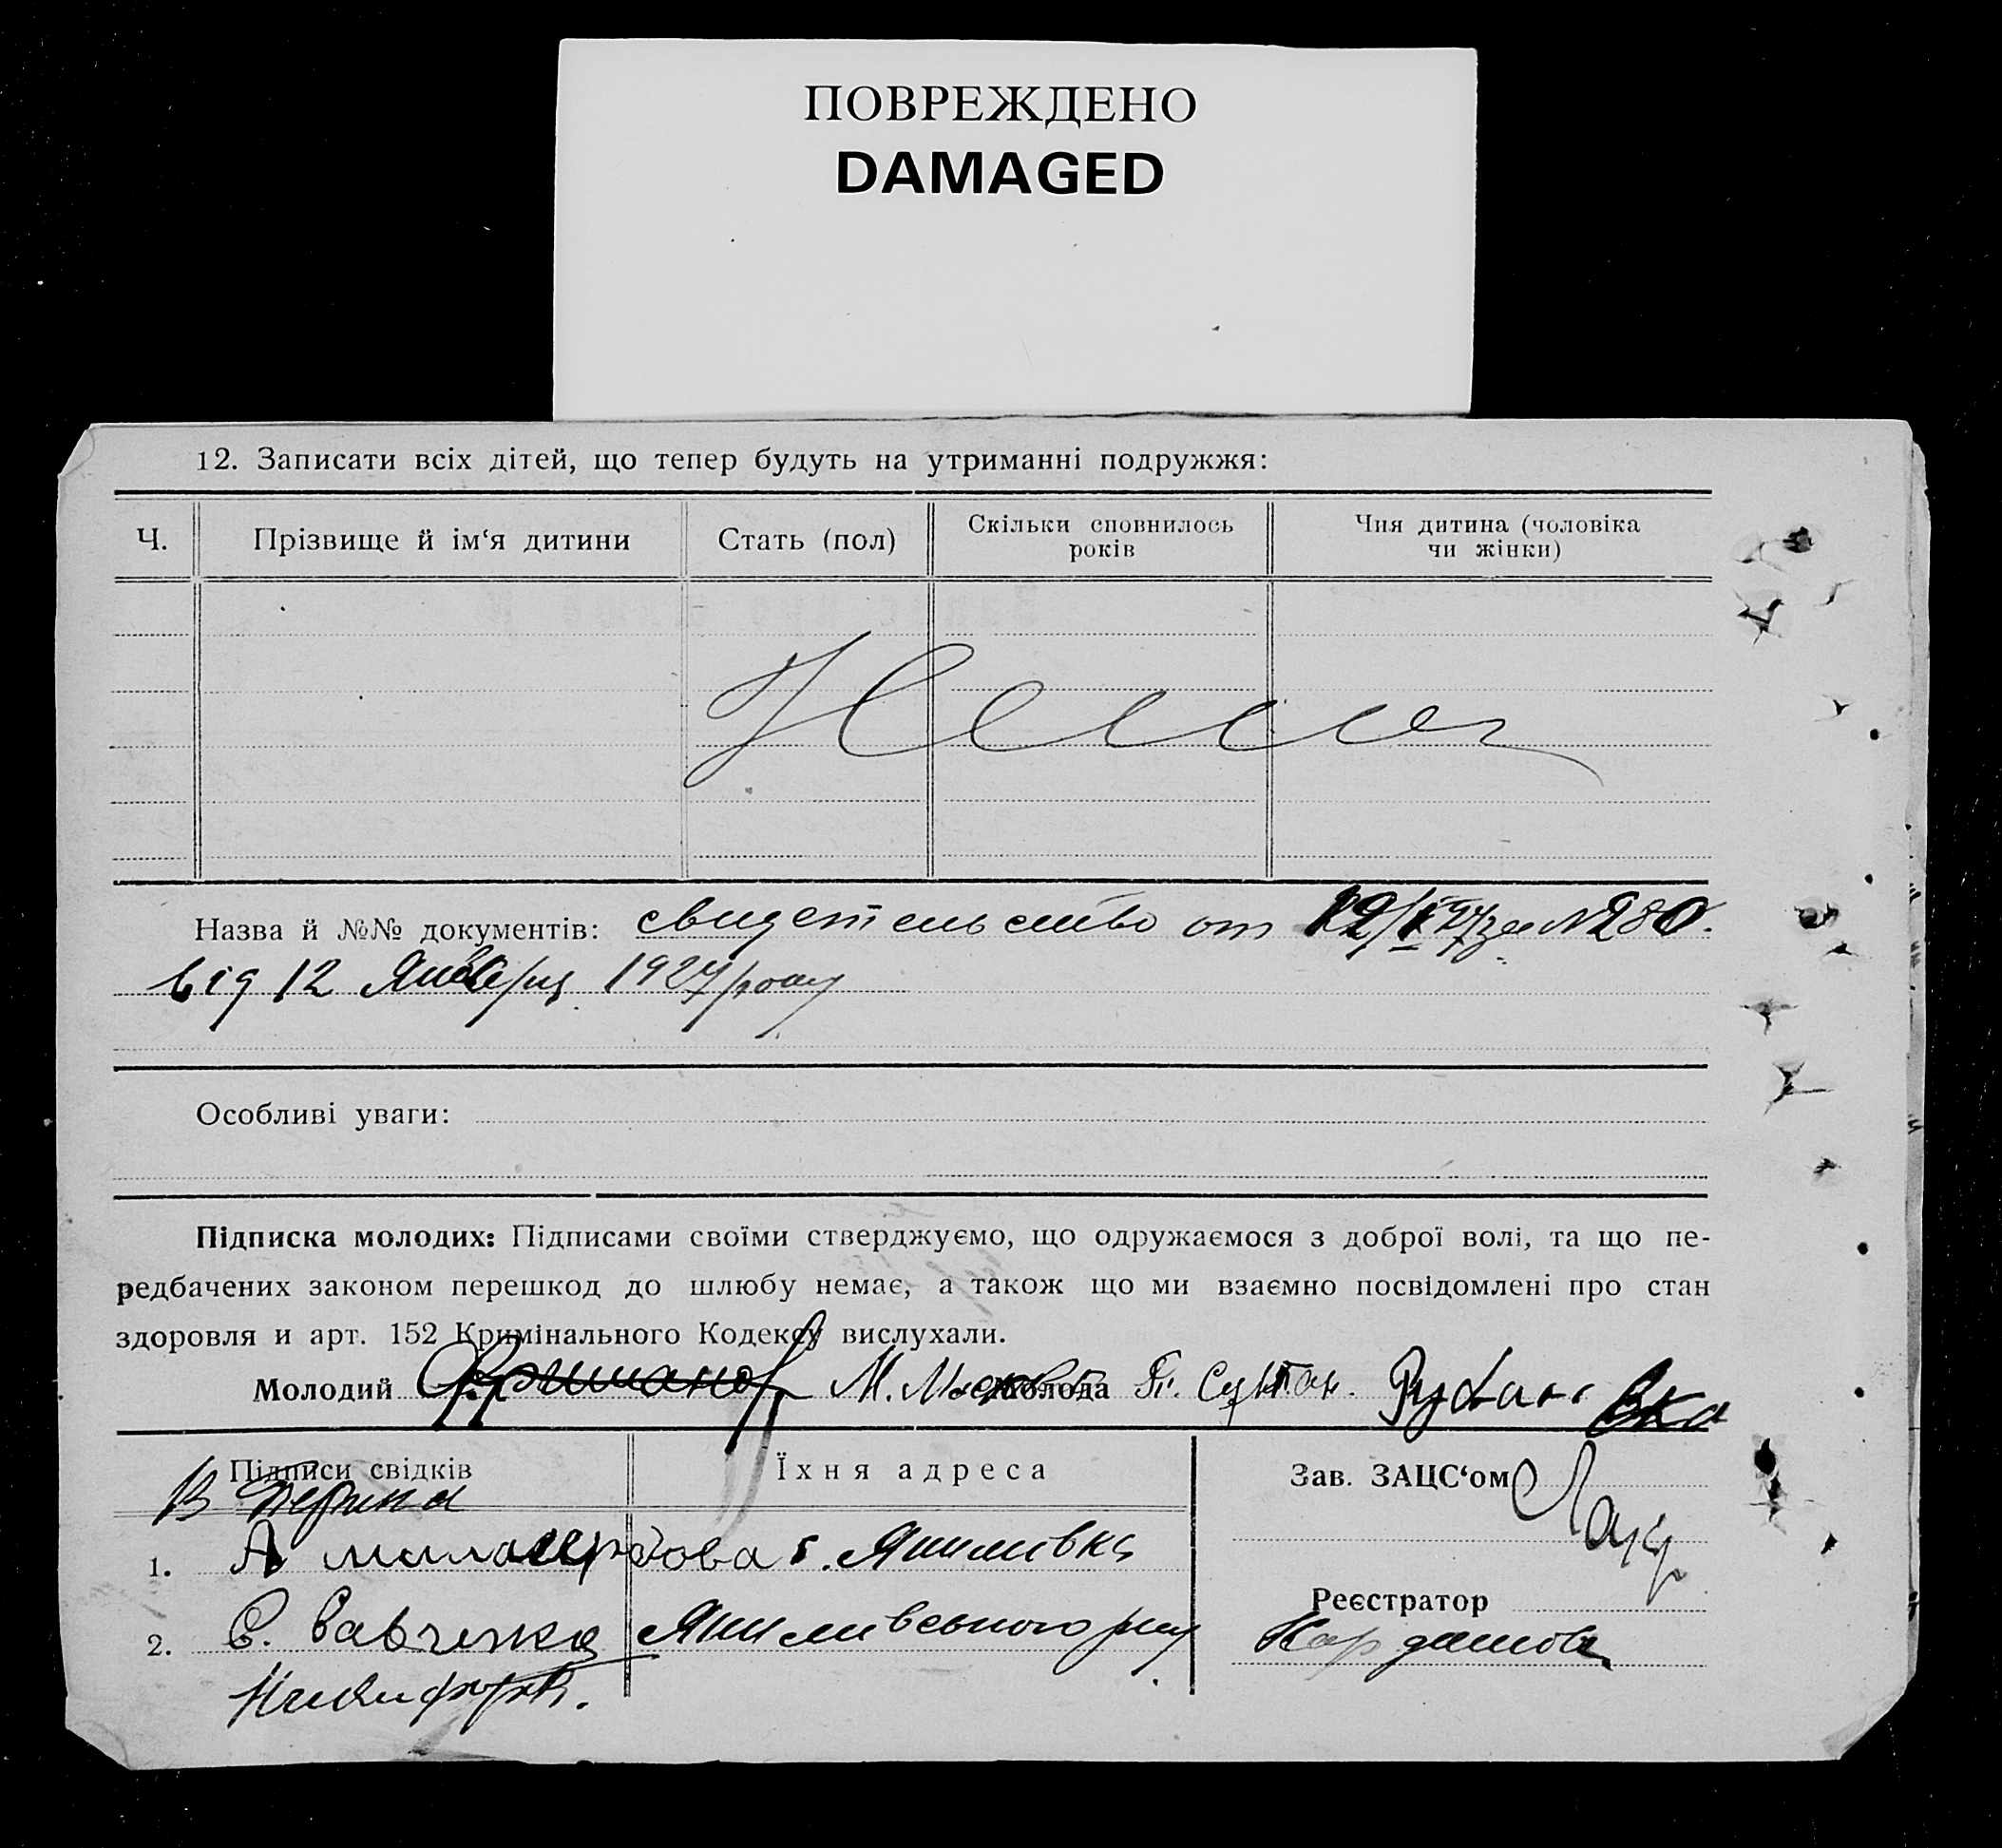 ПОВРЕЖДЕНО
DAMAGED
12. Записати всіх дітей, що тепер будуть на утриманні подружжя:
Ч. Прізвище й ім‘я дитини Стать (пол) Скільки сповнилось років Чия дитина (чоловіка чи жінки)
Назва й №№ документів: свидетельство от 12/I 27 за № 280.
від 12 Января 1927 року
Особливі уваги:
Підписка молодих: Підписами своїми стверджуємо, що одружаємося з доброї волі, та що пе-
редбачених законом перешкод до шлюбу немає, а також що ми взаємно посвідомлені про стан
здоровля и арт. 152 Кримінального Кодексу вислухали.
Молодий М. Молода
Підписи свідків Їхня адреса Зав. ЗАЦС‘ом
В
1. А милосердова с. Якимівка
Реєстратор
2. Савченко Якимівського р-ну Кардашова